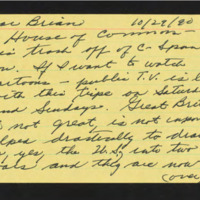 Brian 10/29/90
House of Common -
trash off of C-Span
If I want to watch
cartoons - public T.V. is
with this tripe on Saturd
and Sundays. Great Bri
not great, is not impor
helped drastically to dra
yes, the U.S. into two
ars and they are now
(over